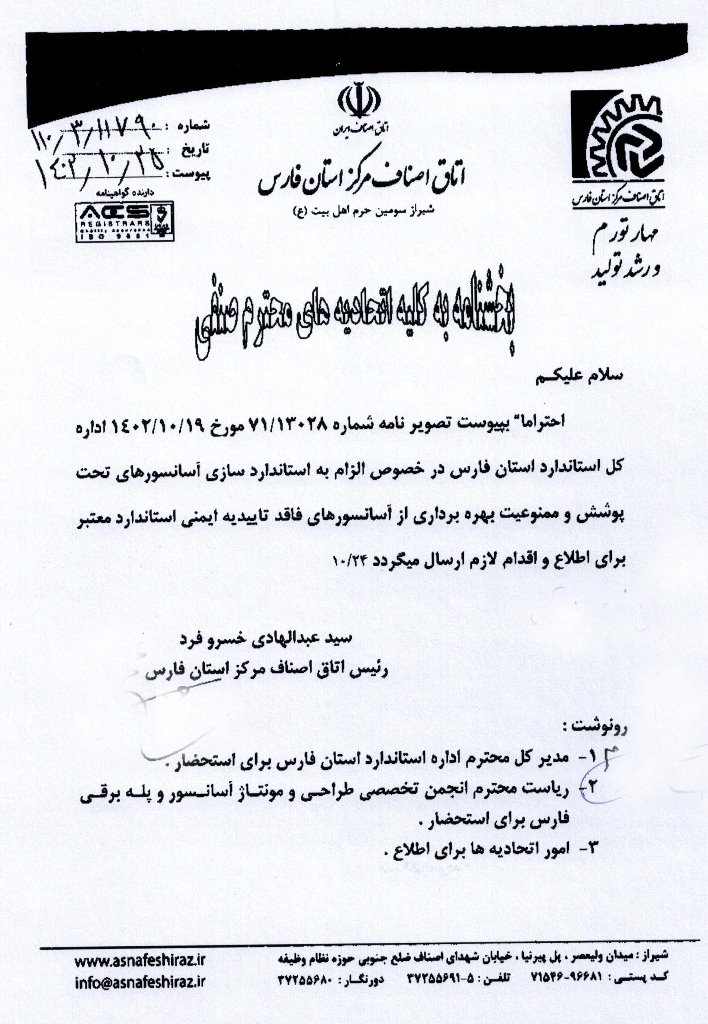 اتاق اصناف ایران
اتاق اصناف مرکز استان فارس
شیراز سومین حرم اهل بیت (ع)
شماره : ۱۱۰/۳/۱۱۷۹۰
تاریخ : ۱۴۰۲/۱۰/۲۵
پیوست :
دارنده گواهینامه
ACS
REGISTRARS
Quality Assurance
ISO 9001
اتاق اصناف مرکز استان فارس
مهار تورم
و رشد تولید
بخشنامه به کلیه اتحادیه های محترم صنفی
سلام علیکم
احتراما" بپیوست تصویر نامه شماره ۷۱/۱۳۰۲۸ مورخ ۱۴۰۲/۱۰/۱۹ اداره
کل استاندارد استان فارس در خصوص الزام به استاندارد سازی آسانسورهای تحت
پوشش و ممنوعیت بهره برداری از آسانسورهای فاقد تاییدیه ایمنی استاندارد معتبر
برای اطلاع و اقدام لازم ارسال میگردد ۱۰/۲۴
سید عبدالهادی خسرو فرد
رئیس اتاق اصناف مرکز استان فارس
رونوشت :
۱- مدیر کل محترم اداره استاندارد استان فارس برای استحضار .
۲- ریاست محترم انجمن تخصصی طراحی و مونتاژ آسانسور و پله برقی
فارس برای استحضار .
۳- امور اتحادیه ها برای اطلاع .
شیراز : میدان ولیعصر ، پل پیرنیا ، خیابان شهدای اصناف ضلع جنوبی حوزه نظام وظیفه
کد پستی : ۹۶۶۸۱-۷۱۵۴۶ تلفن : ۵-۳۷۲۵۵۶۹۱ دورنگار : ۳۷۲۵۵۶۸۰
www.asnafeshiraz.ir
info@asnafeshiraz.ir